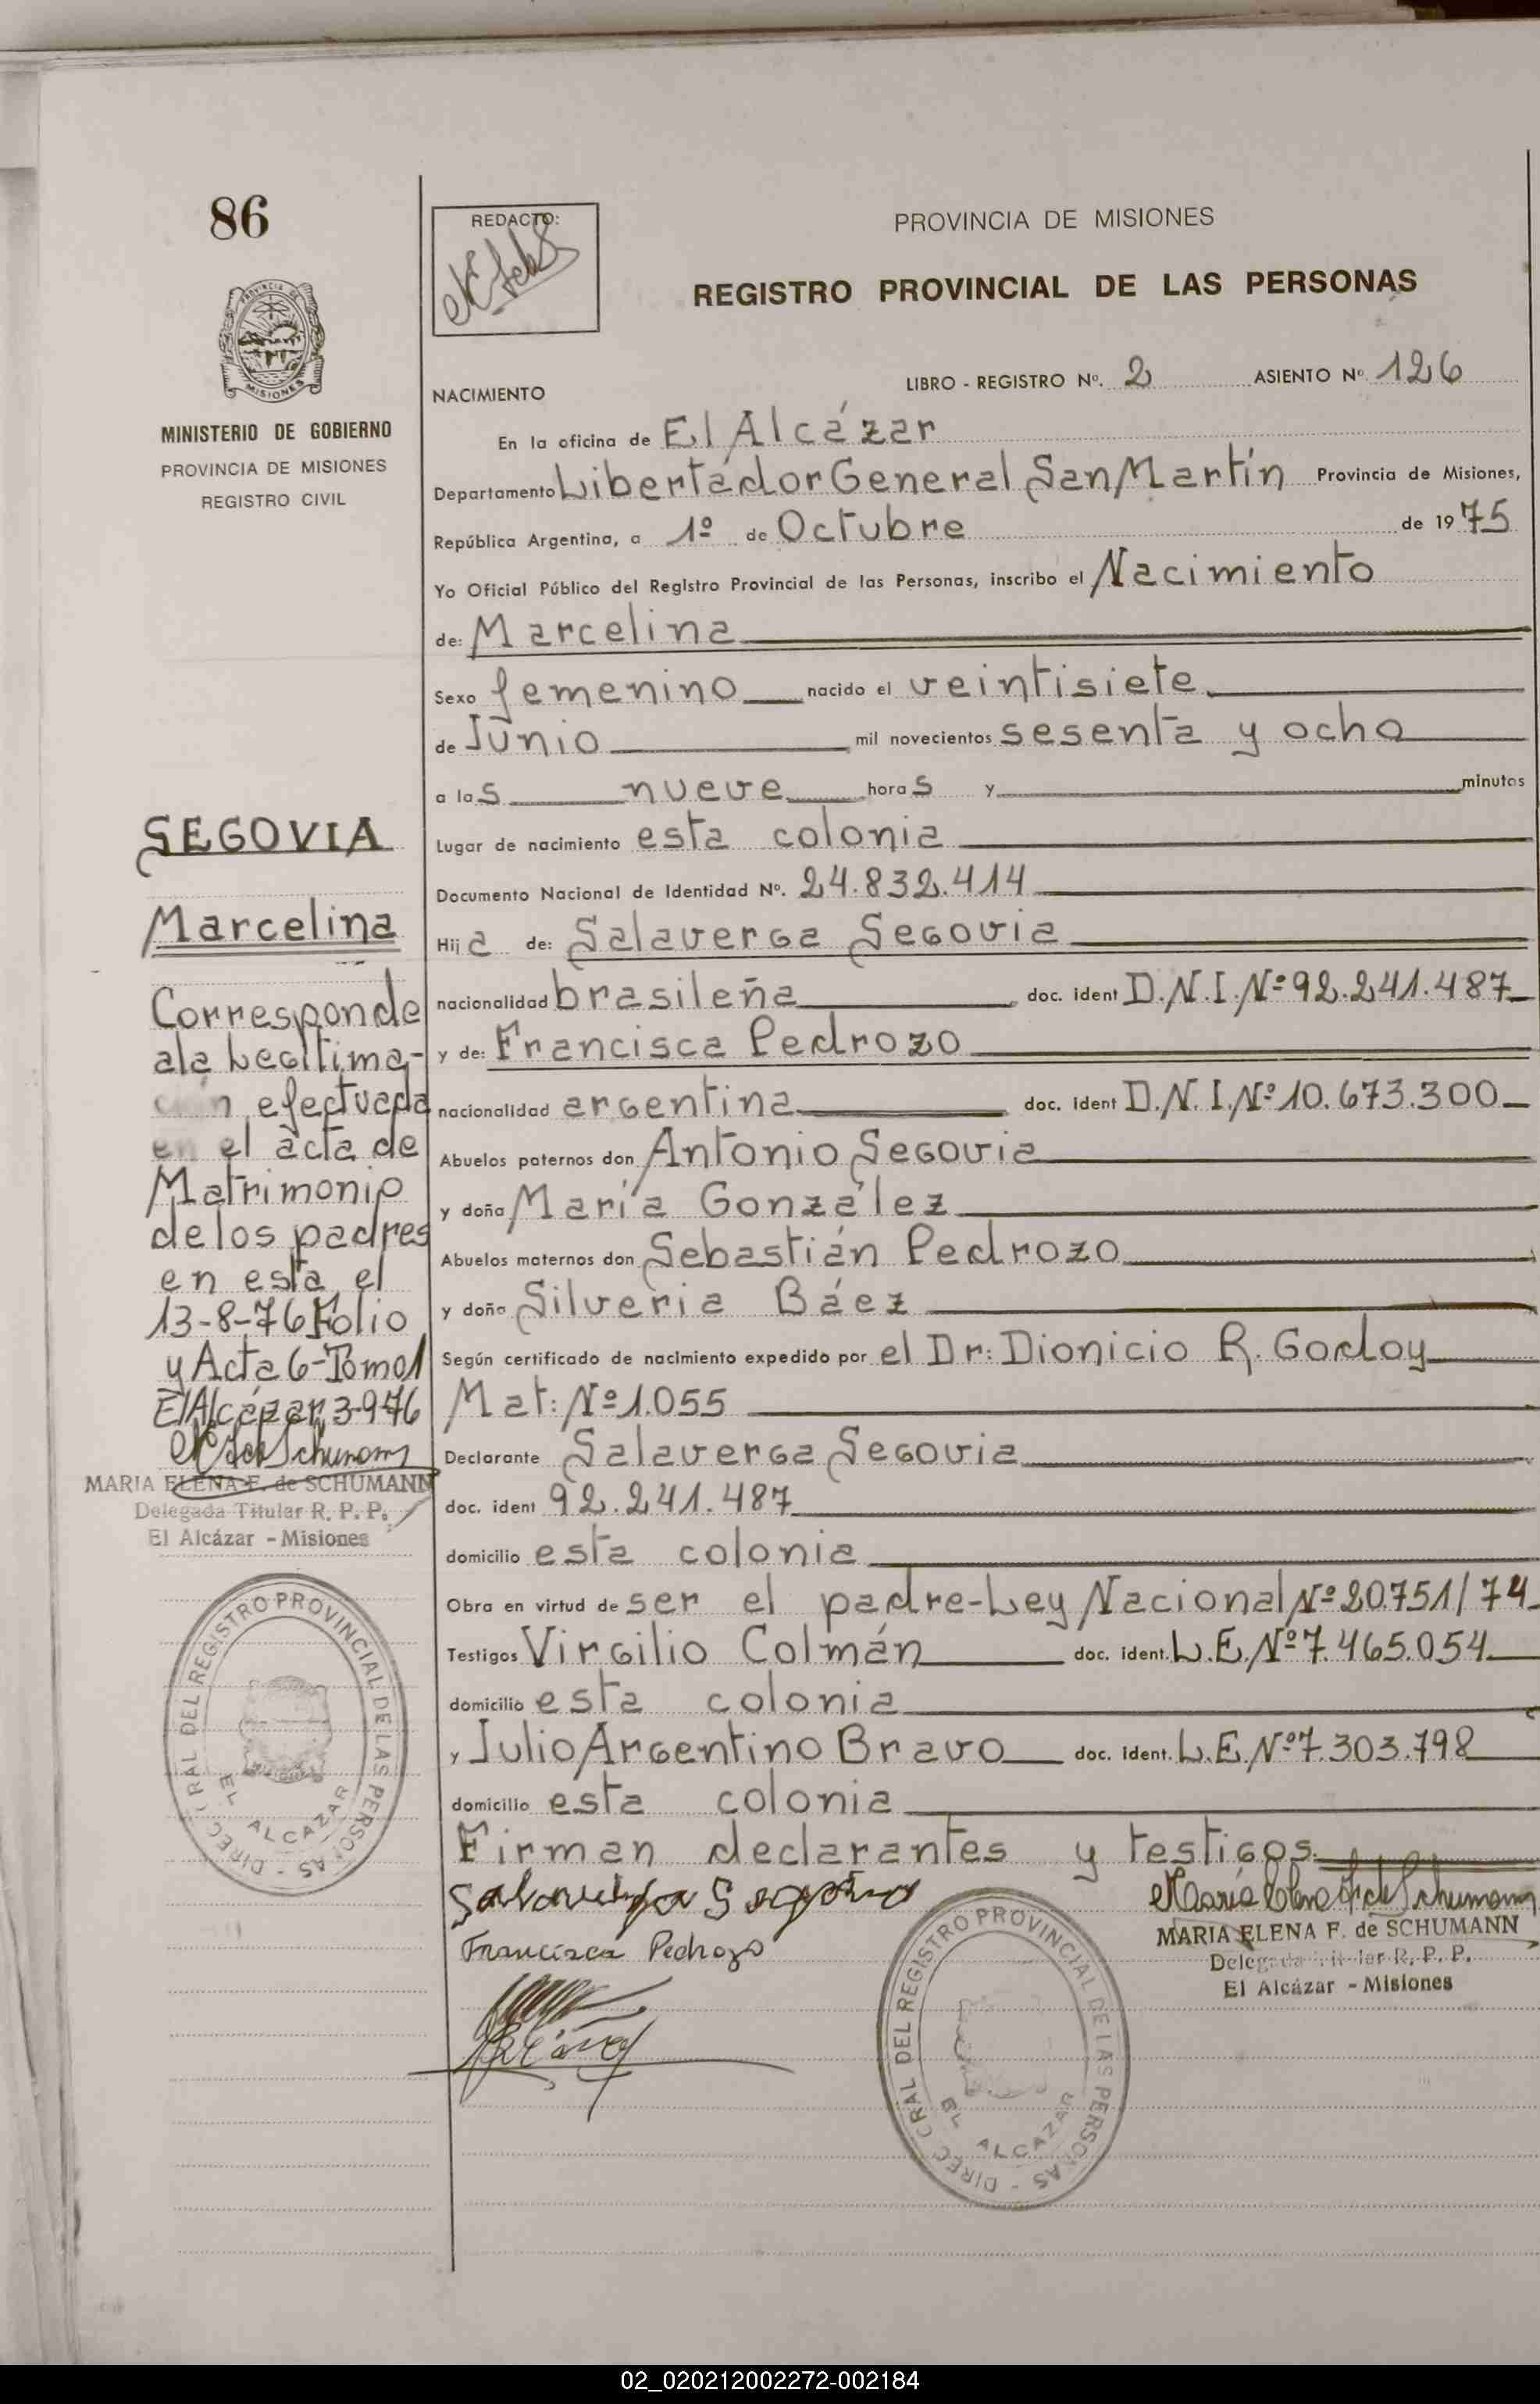 86
REDACTO:
PROVINCIA DE MISIONES
REGISTRO PROVINCIAL DE LAS PERSONAS
PROVINCIA DE
MISIONES
MINISTERIO DE GOBIERNO
PROVINCIA DE MISIONES
REGISTRO CIVIL
NACIMIENTO
LIBRO - REGISTRO Nº. 2 ASIENTO Nº. 126
En la oficina de El Alcázar
Departamento Libertador General San Martín Provincia de Misiones,
República Argentina, a 1º de Octubre de 1975
Yo Oficial Público del Registro Provincial de las Personas, inscribo el Nacimiento
de: Marcelina
Sexo femenino nacido el veintisiete
de Junio mil novecientos sesenta y ocho
a las nueve horas y minutos
Lugar de nacimiento esta colonia
Documento Nacional de Identidad Nº. 24.832.414
Hija de: Salaverga Segovia
nacionalidad brasileña doc. ident D.N.I.Nº 92.241.487
y de: Francisca Pedrozo
nacionalidad argentina doc. ident D.N.I.Nº 10.673.300
Abuelos paternos don Antonio Segovia
y doña María González
Abuelos maternos don Sebastián Pedrozo
y doña Silveria Báez
Según certificado de nacimiento expedido por el Dr: Dionicio R. Godoy
Mat: Nº 1.055
Declarante Salaverga Segovia
doc. ident 92.241.487
domicilio esta colonia
Obra en virtud de ser el padre-Ley Nacional Nº 20.751/74
Testigos Virgilio Colmán doc. ident. L.E.Nº 7.465.054
domicilio esta colonia
y Julio Argentino Bravo doc. ident. L.E.Nº 7.303.798
domicilio esta colonia
Firman declarantes y testigos
Salaverga Segovia
Francisca Pedrozo
Maria Elena F. de Schumann
MARIA ELENA F. de SCHUMANN
Delegada Titular R. P. P.
El Alcázar - Misiones
DIREC GRAL DEL REGISTRO PROVINCIAL DE LAS PERSONAS
EL ALCAZAR
SEGOVIA
Marcelina
Corresponde
a la Legitima-
ción efectuada
en el acta de
Matrimonio
de los padres
en esta el
13-8-76 Folio
y Acta 6-Tomo 1
El Alcázar, 3-9-76
MARIA ELENA F. de SCHUMANN
Delegada Titular R. P. P.
El Alcázar - Misiones
DIREC GRAL DEL REGISTRO PROVINCIAL DE LAS PERSONAS
EL ALCAZAR
02_020212002272-002184